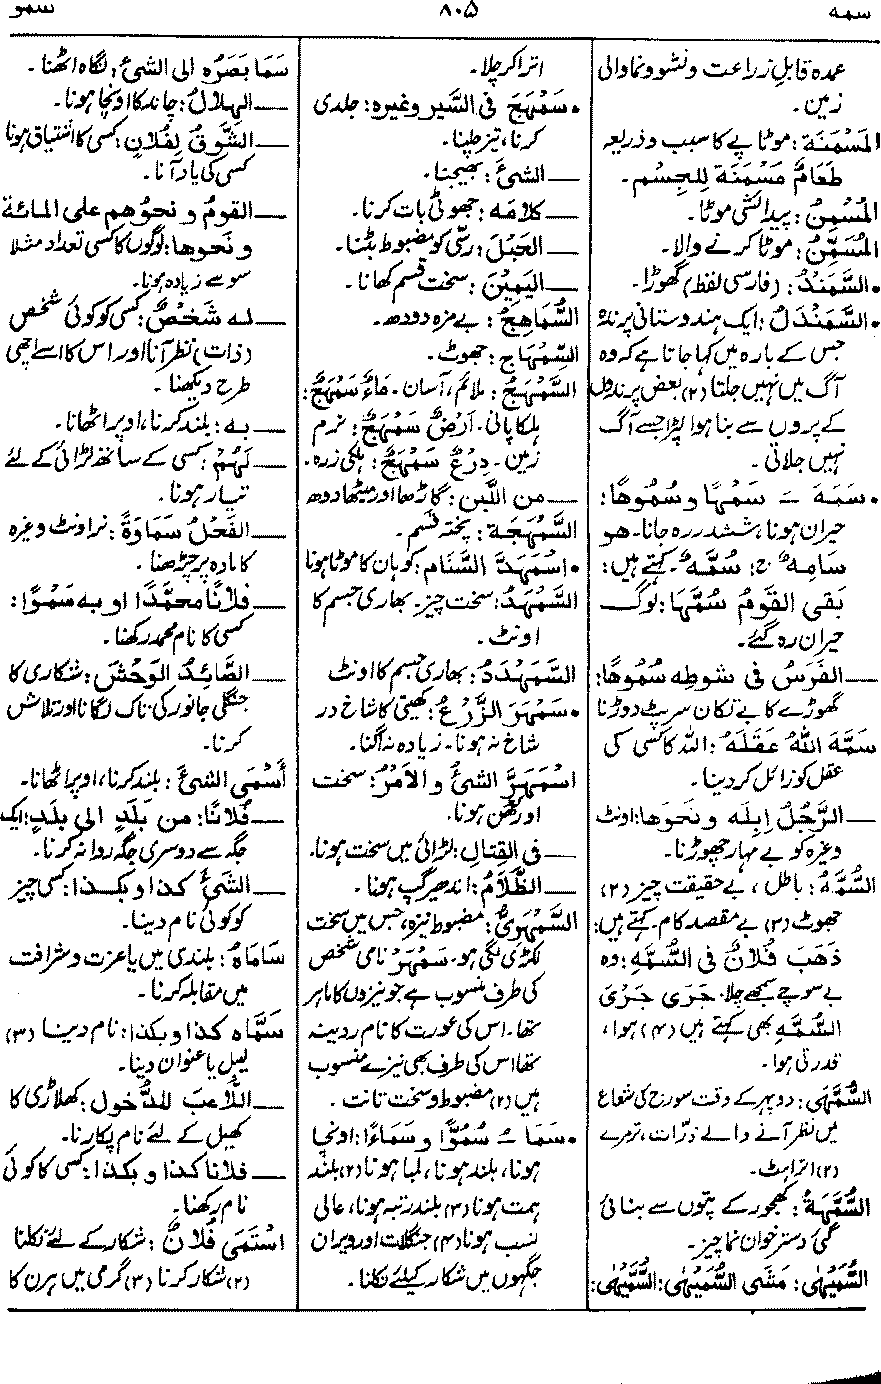 سمه
۸۰۵
سمو
عمدہ قابلِ زراعت و نشو و نما والی
زمین۔
المَسْمَنَة: موٹاپے کا سبب و ذریعہ
طَعَامٌ مَسْمَنَة لِلجِسْم۔
المُسْمِنُ: پیدائشی موٹا۔
المُسَمِّنُ: موٹا کرنے والا۔
•السَّمَنْدُ: (فارسی لفظ) گھوڑا۔
•السَّمَنْدَلُ: ایک ہندوستانی پرندہ
جس کے بارہ میں کہا جاتا ہے کہ وہ
آگ میں نہیں جلتا (۲) بعض پرندوں
کے پروں سے بنا ہوا کپڑا جسے آگ
نہیں جلاتی۔
•سَمَهَ ـَ سَمْهًا و سُمُوهًا:
حیران ہونا، ششدر رہ جانا۔ هو
سامِهٌ ج: سُمَّهٌ۔ کہتے ہیں:
بَقی القَومُ سُمَّهًا: لوگ
حیران رہ گئے۔
ـــ الفَرَسُ فی شَوطِه سُمُوهًا:
گھوڑے کا بے تکان سرپٹ دوڑنا
سَمَّهَ اللهُ عَقلَهُ: اللہ کا کسی کی
عقل کو زائل کر دینا۔
ـــ الرَّجُلُ اِبِلَه و نَحوَها: اونٹ
وغیرہ کو بے مہار چھوڑنا۔
السُّمَّهُ: باطل، بے حقیقت چیز (۲)
جھوٹ (۳) بے مقصد کام۔ کہتے ہیں:
ذَهَبَ فُلَانٌ فی السُّمَّهِ: وہ
بے سوچے سمجھے چلا۔ جَرَی جَرْیَ
السُّمَّهِ بھی کہتے ہیں (۴) ہوا،
قدرتی ہوا۔
السُّمَّهَی: دوپہر کے وقت سورج کی شعاع
میں نظر آنے والے ذرّات، ترمرے
(۲) اتراہٹ۔
السُّمَّهَةُ: کھجور کے پتوں سے بنائی
گئی دسترخوان نما چیز۔
السُّمَّیْهَی: مَشَی السُّمَّیْهَی: السُّمَّیْهَی:
اترا کر چلا۔
•سَمْهَجَ فی السَّیر وغیرہ: جلدی
کرنا، تیز چلنا۔
ـــ الشئَ: بھیجنا۔
ـــ کلامَه: جھوٹی بات کرنا۔
ـــ الحَبْلَ: رسّی کو مضبوط بٹنا۔
ـــ الیَمِیْنَ: سخت قسم کھانا۔
السُّمَاهِجُ: بے مزہ دودھ۔
السِّمْهَاج: جھوٹ۔
السَّمْهَجُ: ملائم، آسان۔ مَاءٌ سَمْهَجٌ:
ہلکا پانی۔ اَرْضٌ سَمْهَجٌ: نرم
زمین۔ دِرْعٌ سَمْهَجٌ: ہلکی زرہ۔
ـــ من اللَّبَن: گاڑھا اور میٹھا دودھ
السَّمْهَجَة: پختہ قسم۔
•اسْمَهَدَّ السَّنَام: کوہان کا موٹا ہونا
السَّمْهَدُ: سخت چیز۔ بھاری جسم کا
اونٹ۔
السَّمَهْدَدُ: بھاری جسم کا اونٹ
•سَمْهَرَ الزَّرْعُ: کھیتی کا شاخ در
شاخ نہ ہونا۔ زیادہ نہ اگنا۔
اسْمَهَرَّ الشئُ و الاَمرُ: سخت
اور کٹھن ہونا۔
ـــ فی القِتَال: لڑائی میں سخت ہونا۔
ـــ الظَّلَامُ: اندھیر گپ ہونا۔
السَّمْهَرِیُّ: مضبوط نیزہ، جس میں سخت
لکڑی لگی ہو۔ سَمْهَر نامی شخص
کی طرف منسوب ہے جو نیزوں کا ماہر
تھا۔ اس کی عورت کا نام ردینہ
تھا اس کی طرف بھی نیزے منسوب
ہیں (۲) مضبوط و سخت تانت۔
•سَمَا ـُ سُمُوًّا و سَمَاءً: اونچا
ہونا، بلند ہونا، لمبا ہونا (۲) بلند
ہمت ہونا (۳) بلند رتبہ ہونا، عالی
نسب ہونا (۴) جنگلات اور ویران
جگہوں میں شکار کیلئے نکلنا۔
سَمَا بَصَرُه الی الشئِ: نگاہ اٹھنا۔
ـــ الهِلَالُ: چاند کا اونچا ہونا۔
ـــ الشَّوقُ لِفُلَانٍ: کسی کا اشتیاق ہونا
کسی کی یاد آنا۔
ـــ القومُ و نحوُهم علی المائة
و نَحوِها: لوگوں کا کسی تعداد مثلاً
سو سے زیادہ ہونا۔
ـــ له شَخْصٌ: کسی کو کوئی شخص
(ذات) نظر آنا اور اس کا اسے اچھی
طرح دیکھنا۔
ـــ به: بلند کرنا، اوپر اٹھانا۔
ـــ لَهُمْ: کسی کے ساتھ لڑائی کے لئے
تیار ہونا۔
ـــ الفَحْلُ سَمَاوَةً: نر اونٹ وغیرہ
کا مادہ پر چڑھنا۔
ـــ فلانًا محمّدًا او به سَمْوًا:
کسی کا نام محمد رکھنا۔
ـــ الصَّائِدُ الوَحْشَ: شکاری کا
جنگلی جانور کی تاک لگانا اور تلاش
کرنا۔
أَسْمَی الشئَ: بلند کرنا، اوپر اٹھانا۔
ـــ فُلَانًا: من بَلَدٍ الی بلدٍ: ایک
جگہ سے دوسری جگہ روانہ کرنا۔
ـــ الشئَ کذا و بکذا: کسی چیز
کو کوئی نام دینا۔
سَامَاهُ: بلندی میں یا عزت و شرافت
میں مقابلہ کرنا۔
سَمَّاه کذا و بکذا: نام دینا (۳)
لیبل یا عنوان دینا۔
ـــ اللَّاعِبَ للدُّخول: کھلاڑی کا
کھیل کے لئے نام پکارنا۔
ـــ فلانا کذا و بکذا: کسی کا کوئی
نام رکھنا۔
اسْتَمَی فُلَانٌ: شکار کے لئے نکلنا
(۲) شکار کرنا (۳) گرمی میں ہرن کا